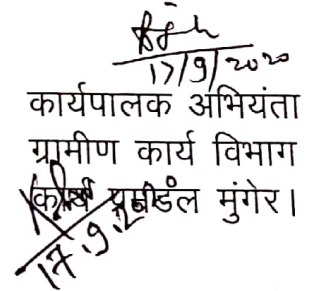 17/9/2020
कार्यपालक अभियंता
ग्रामीण कार्य विभाग
कार्य प्रमंडल मुंगेर।
17.9.2020